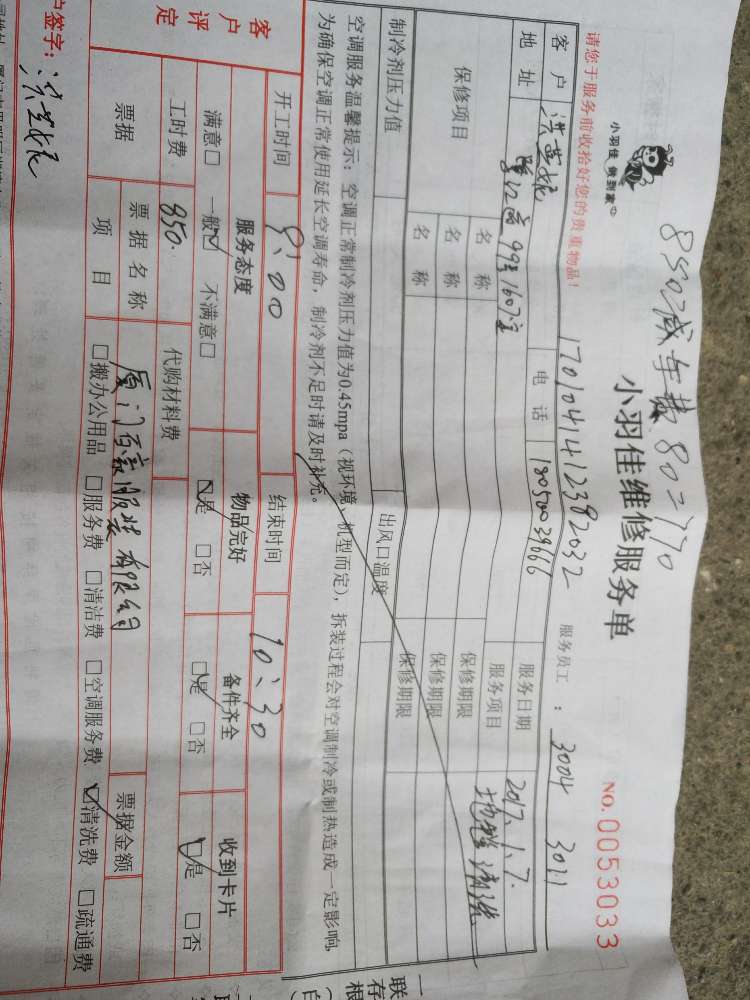 850减车费80=770
小羽佳 做到家
小羽佳维修服务单
NO.0053033
1701041412392032
服务员工：3004 3011
请您于服务前收拾好您的贵重物品！
客户
电话 18050039666
服务日期 2017.1.7.
地址 99号1607室
服务项目 地毯清洗
保修项目
名称 保修期限
名称 保修期限
名称 保修期限
制冷剂压力值 出风口温度
空调服务温馨提示：空调正常制冷剂压力值为0.45mpa（视环境、机型而定），拆装过程会对空调制冷或制热造成一定影响，
为确保空调正常使用延长空调寿命，制冷剂不足时请及时补充。
开工时间 9:00 结束时间 10:30
客户评定
服务态度 物品完好 备件齐全 收到卡片
满意□ 一般☑ 不满意□ ☑是 □否 ☑是 □否 ☑是 □否
工时费 850. 代购材料费
票据 票据名称 厦门百家服装有限公司 票据金额
项目 □搬办公用品 □服务费 □清洁费 □空调服务费 ☑清洗费 □疏通费
户签字：
一联存根（白